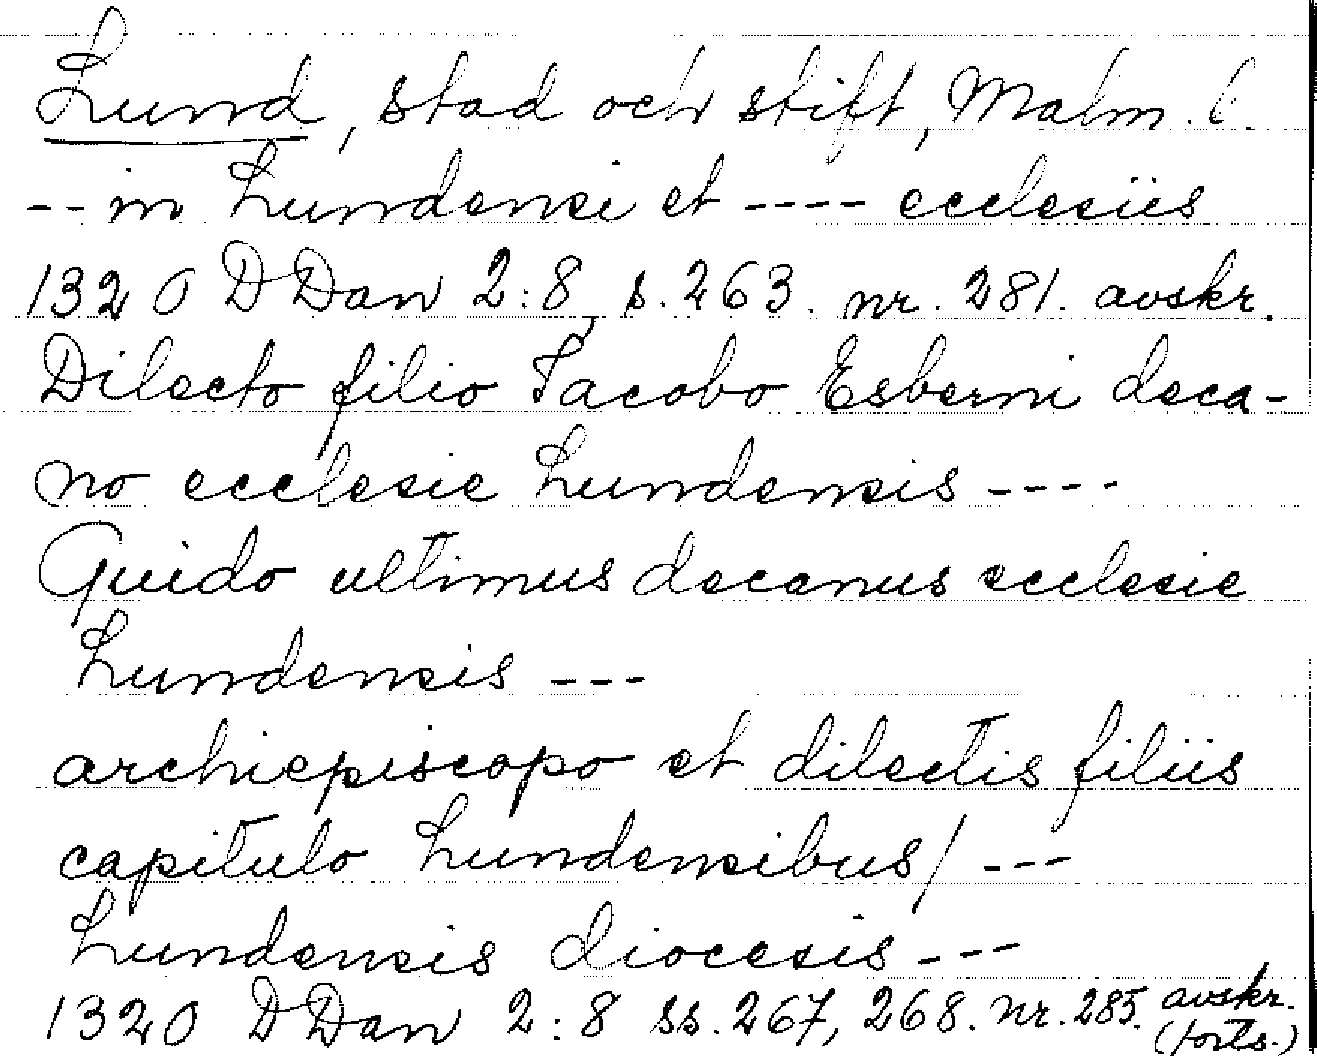 Lund, stad och stift, Malm. l.
-- in Lundensi et ---- ecclesiis
1320 DDan 2:8, s. 263. nr. 281. avskr.
Dilecto filio Jacobo Esberni deca-
no ecclesie Lundensis ----
Guido ultimus decanus ecclesie
Lundensis ---
archiepiscopo et dilectis filiis
capitulo Lundensibus/ ---
Lundensis diocesis ---
1320 DDan 2:8 ss. 267, 268. nr. 285. avskr.
(forts.)